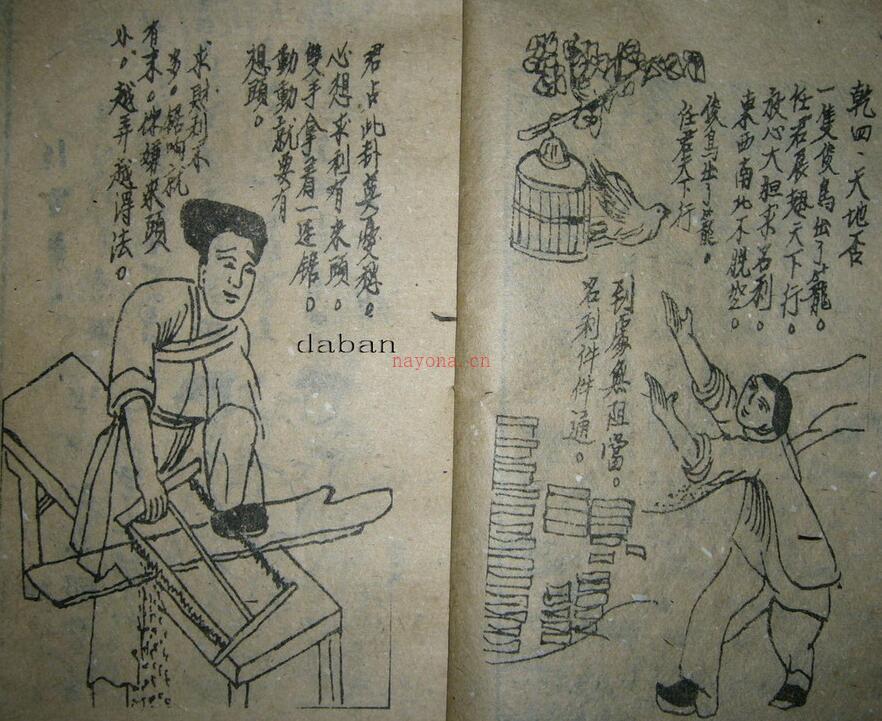 乾四、天地否
一隻俊鳥出了籠。
任君展翅天下行。
放心大担求名利。
東西南北不脫空。
俊鳥出了籠。
任君天下行
到處無阻當。
名利件件通。
君占此卦莫憂愁。
心想求利有來頭。
雙手拿着一連鋸。
動動就要有
想頭。
求財利不
多。鋸响就
有末。你嫌來頭
小。越弄越得法。
daban
nayona.cn